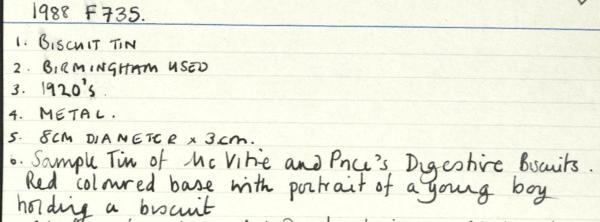 1988 F735.
1. BISCUIT TIN
2. BIRMINGHAM USED
3. 1920's
4. METAL.
5. 8CM DIAMETER x 3cm.
6. Sample Tin of Mc Vitie and Price's Digestive Biscuits.
Red coloured base with portrait of a young boy
holding a biscuit